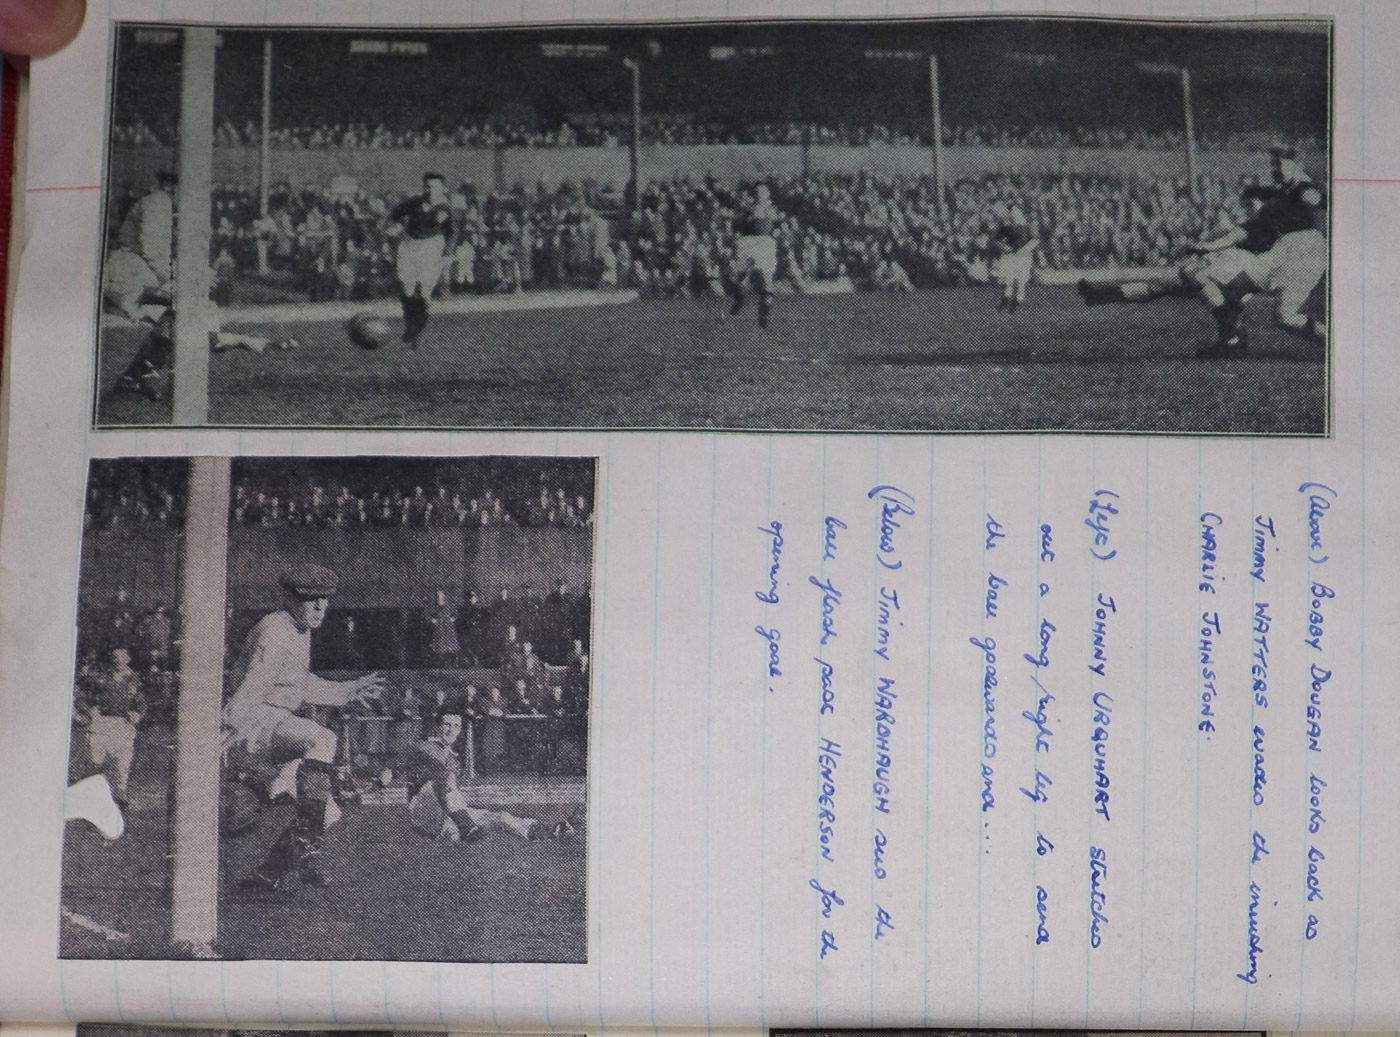 (Above) BOBBY DOUGAN looks back as
Jimmy WATTERS evades the inrushing
CHARLIE JOHNSTONE.
(Left) JOHNNY URQUHART stretches
out a long right leg to send
the ball goalwards and...
(Below) Jimmy WARDHAUGH sees the
ball flash past HENDERSON for the
opening goal.